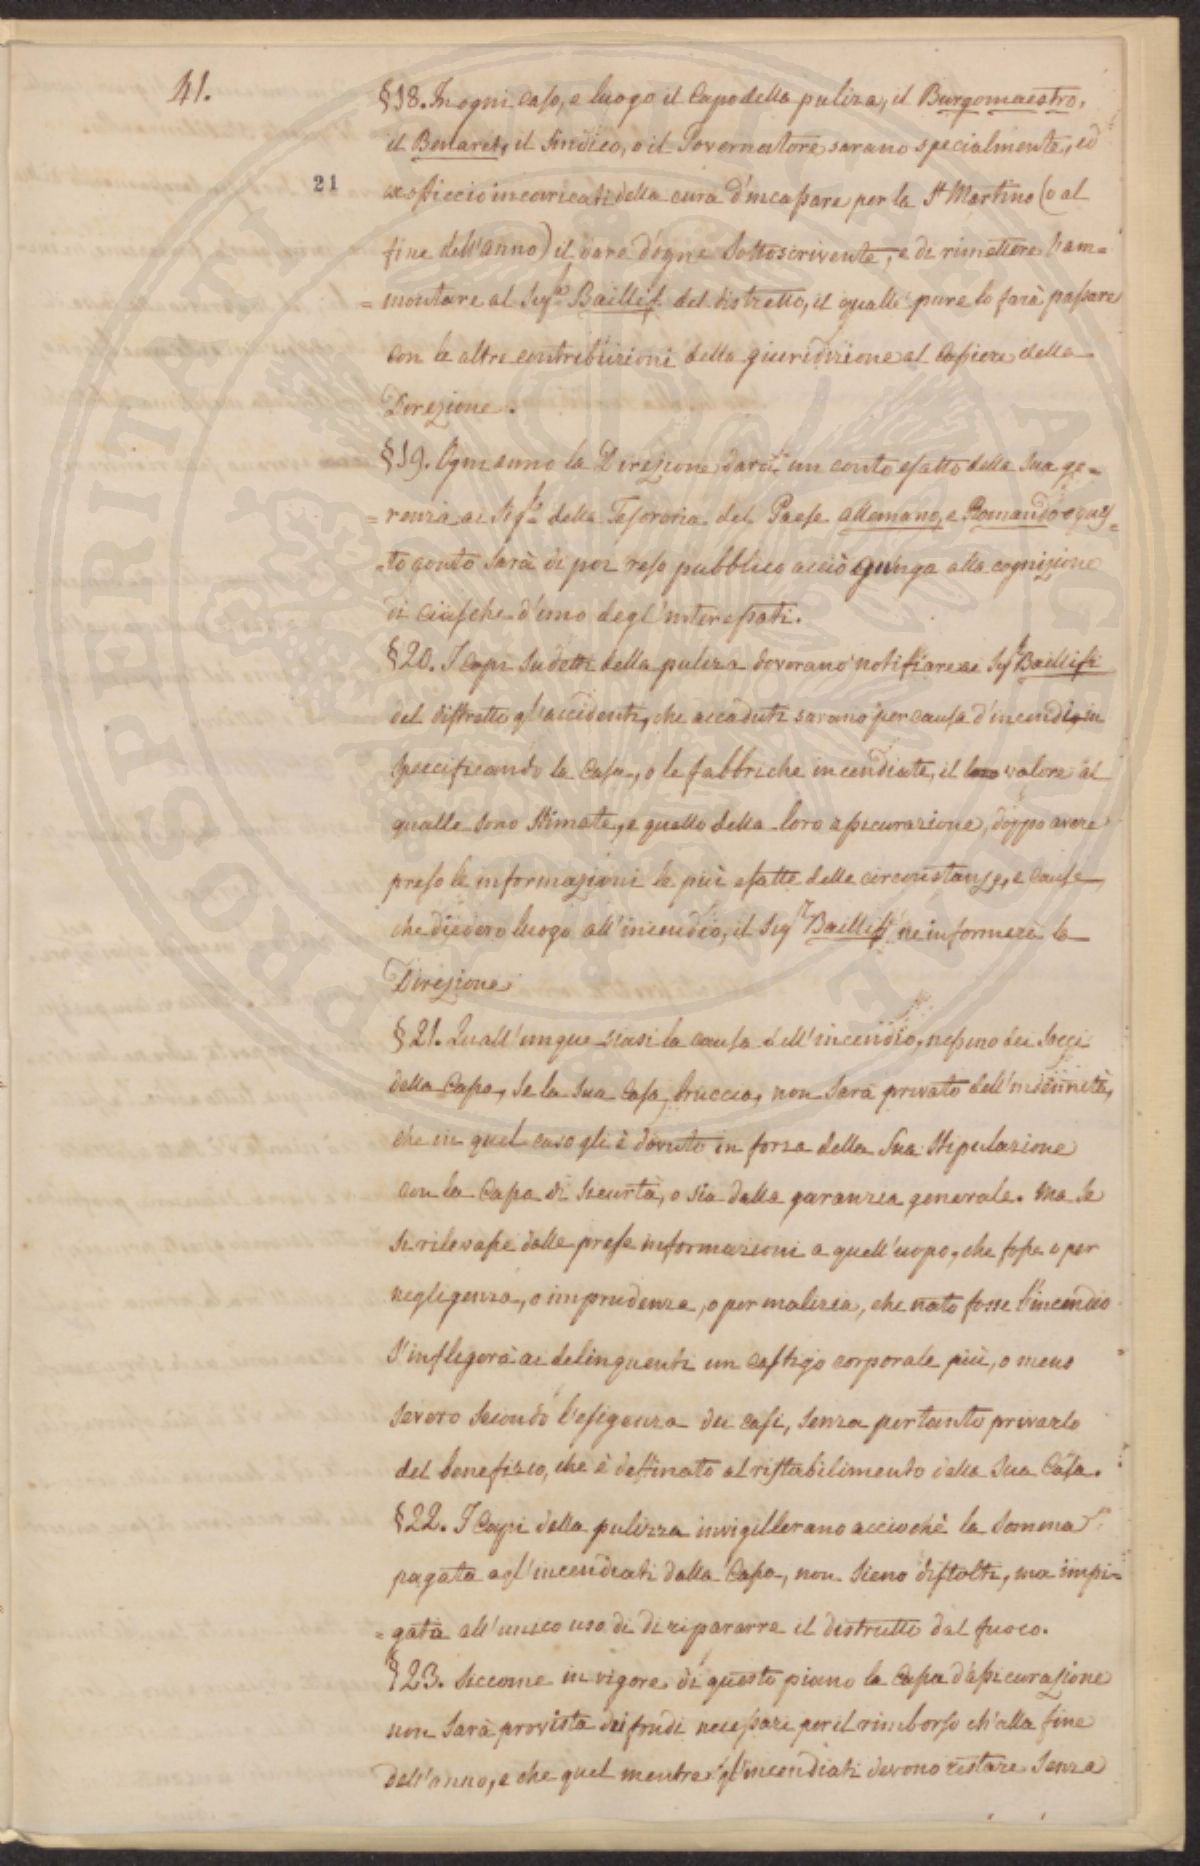 41.
21
§18. In ogni caso, e luogo il Capo della puliza, il Burgomaestro,
il Benaret, il Sindico, o il Governatore sarano specialmente, ed
ex officcio incaricati della cura d'incassare per la St Martino (o al
fine dell'anno) il dare d'ogne Sottoscrivente, e di rimettere l'am=
=montare al Sigr Baillif del distretto, il qualle pure lo farà passare
con le altre contribuizioni della giuridizione al Cassiere della
Direzione.
§19. Ogni anno la Direzione darà un conto esatto della sua ge=
=renza ai Sigri della Tesororia del Paese allemano, e Romando e ques=
=to conto sarà di poi reso pubblico acciò giunga alla cognizione
di ciasche d'uno degl'interessati.
§20. I Capi sudetti della puliza doverano notifiare ai Sigri Baillifi
del distretto gl'accidenti, che accaduti sarano per causa d'incendi, in
specificando la casa, o le fabbriche incendiate, il loro valore al
qualle sono stimate, e quello della loro assicurazione, doppo avere
preso le informazioni le più esatte delle circonstanze, e cause
che diedero luogo all'incendio, il Sigr Baillif ne informerà la
Direzione.
§21. Quall'unque siasi la causa dell'incendio, nessuno dei Socci
della Cassa, se la sua Casa bruccia, non sarà privato dell'indennità,
che in quel caso gli è dovuto in forza della sua stipulazione
con la Cassa di Sicurtà, o sia dalla garanzia generale. Ma se
si rilevasse dalle prese informazioni a quell'uopo, che fosse o per
negligenza, o imprudenza, o per malizia, che nato fosse l'incendio
s'infligerà ai delinquenti un castigo corporale più, o meno
severo secondo l'esigenza dei casi, senza pertanto privarlo
del benefizio, che è destinato al ristabilimento della sua Casa.
§22. I Capi della pulizza invigillerano acciochè la somma
pagata agl'incendiati dalla Cassa, non sieno distolti, ma impi=
=gata all'unico uso di di riparare il distrutto dal fuoco.
§23. Siccome in vigore di questo piano la Cassa d'assicurazione
non sarà provista dei fondi necessari per il rimborso ch'alla fine
dell'anno, e che quel mentre gl'incendiati devono restare senza
PROSPERITATI PUBLICAE AUGENDAE